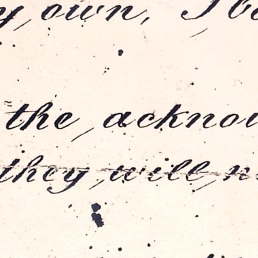 own,
the acknow
they will